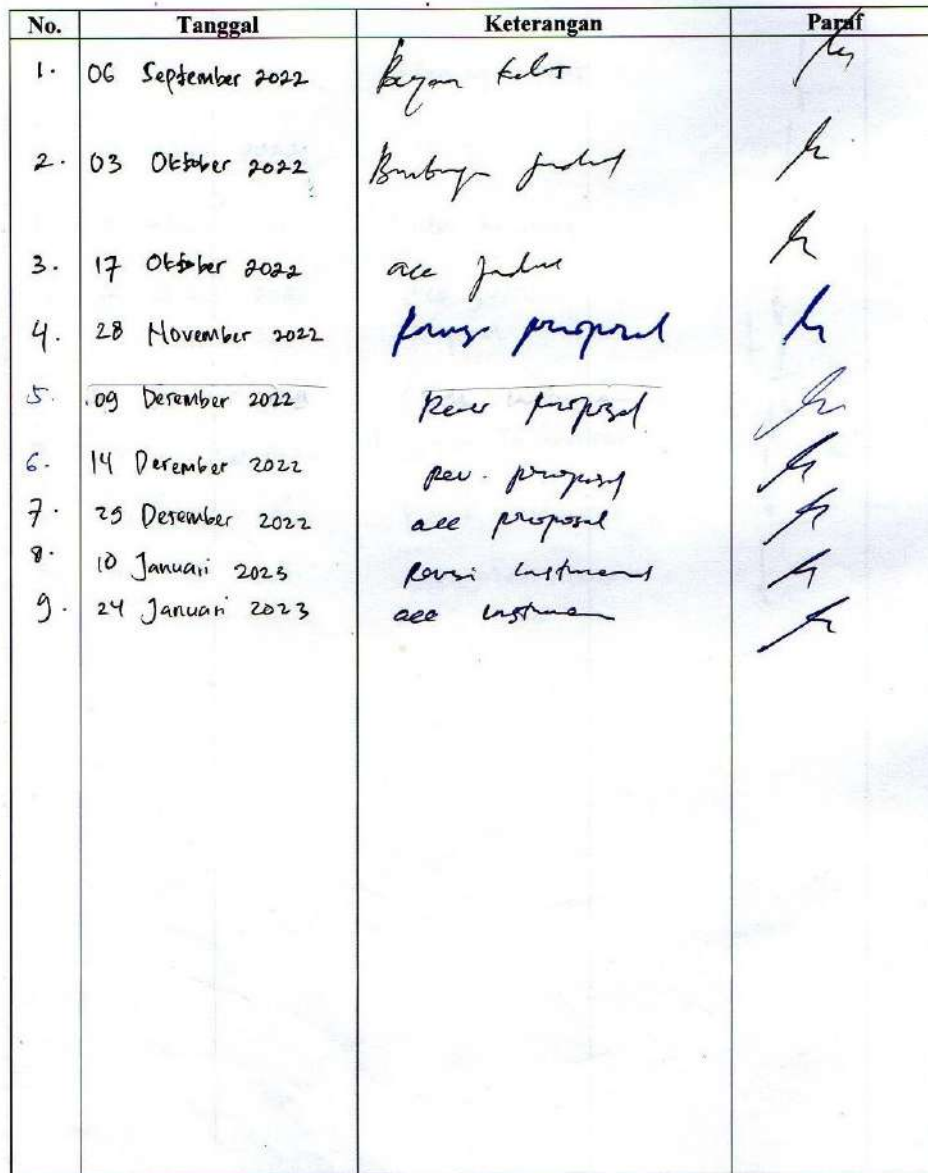 No. Tanggal Keterangan Paraf
1. 06 September 2022
2. 03 Oktober 2022
3. 17 Oktober 2022 acc
4. 28 November 2022 proposal
5. 09 Desember 2022 proposal
6. 14 Desember 2022 Rev. proposal
7. 29 Desember 2022 acc proposal
8. 10 Januari 2023 Revisi instrumen
9. 24 Januari 2023 acc instrumen